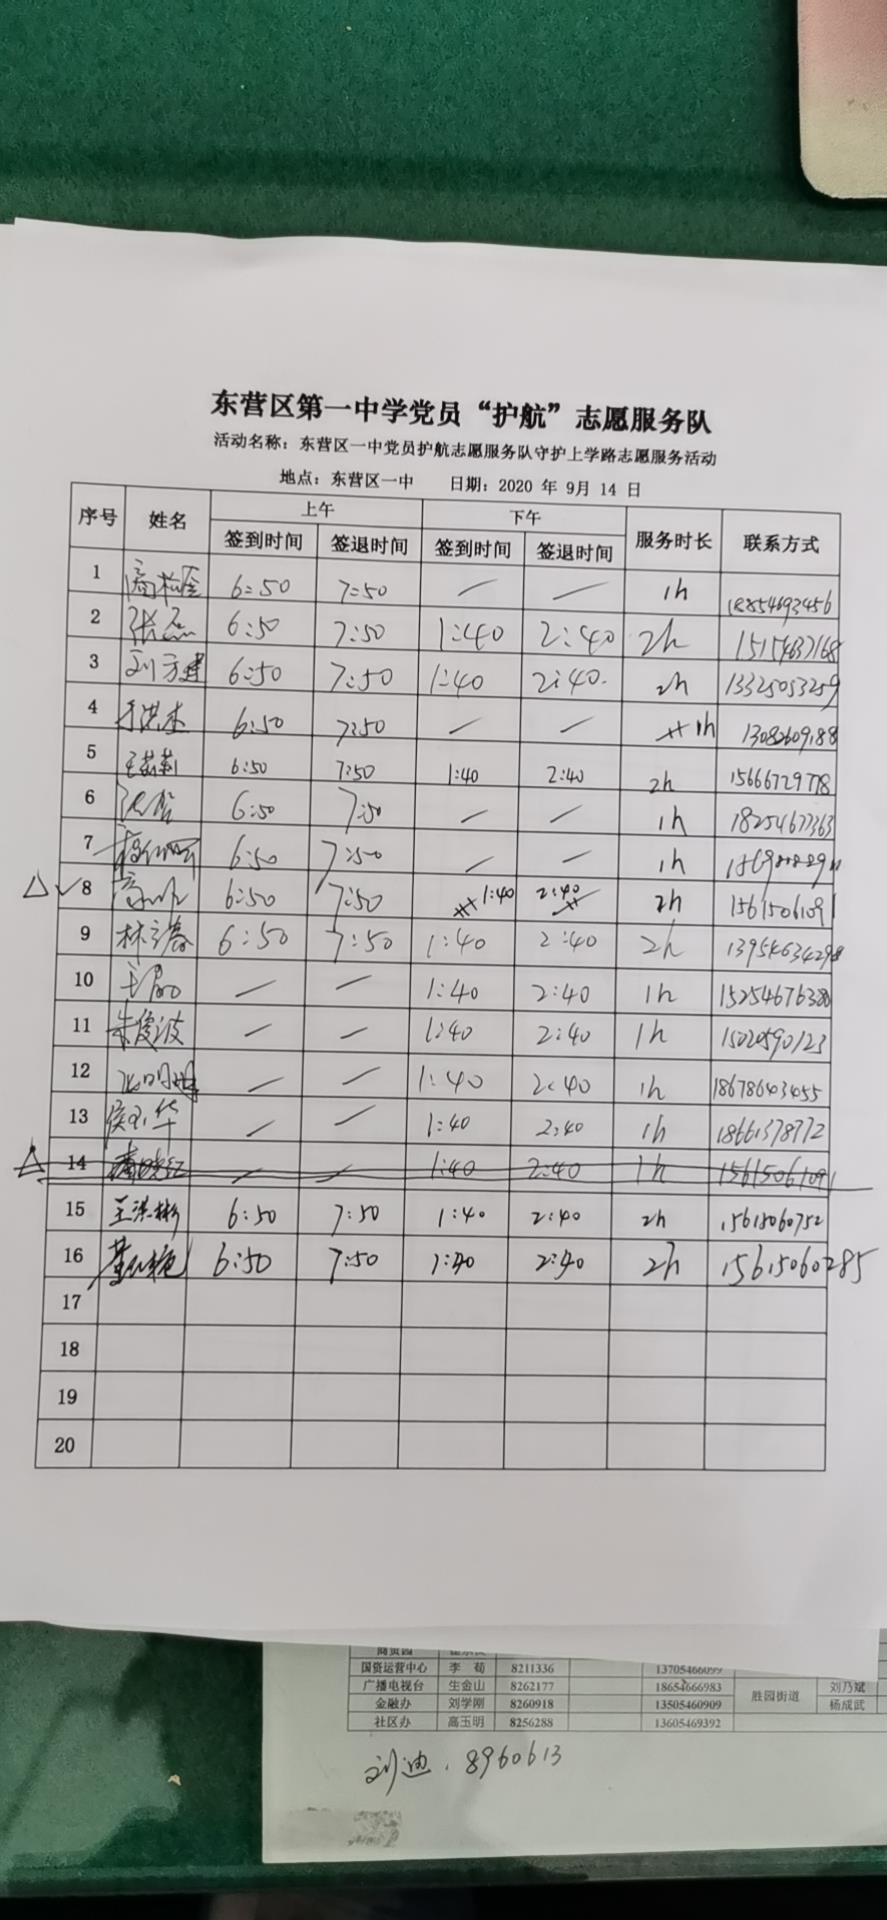 东营区第一中学党员“护航”志愿服务队
活动名称：东营区一中党员护航志愿服务队守护上学路志愿服务活动
地点：东营区一中 日期：2020 年 9月 14 日
序号 姓名 上午 下午 服务时长 联系方式
签到时间 签退时间 签到时间 签退时间
1 6:50 7:50 — — 1h 18854693456
2 6:50 7:50 1:40 2:40 2h 15154637168
3 刘方建 6:50 7:50 1:40 2:40 2h 13325053259
4 于洪杰 6:50 7:50 — — 1h 13082609188
5 王莉莉 6:50 7:50 1:40 2:40 2h 15666729778
6 6:50 7:50 — — 1h 18254677363
7 6:50 7:50 — — 1h
△ ✓ 8 6:50 7:50 1:40 2:40 2h 15615061091
9 林立春 6:50 7:50 1:40 2:40 2h
10 — — 1:40 2:40 1h 15254676380
11 朱俊波 — — 1:40 2:40 1h 15020590123
12 — — 1:40 2:40 1h 18678643455
13 侯玉华 — — 1:40 2:40 1h 18661378772
△ 14 — — 1:40 2:40 1h 15615061091
15 王洪彬 6:50 7:50 1:40 2:40 2h 15615060752
16 6:50 7:50 1:40 2:40 2h 15615060285
17
18
19
20
国资运营中心 李 荀 8211336 13705466099
广播电视台 生金山 8262177 18654666983 胜园街道 刘乃斌
金融办 刘学刚 8260918 13505460909 杨成武
社区办 高玉明 8256288 13605469392
刘迪．8960613